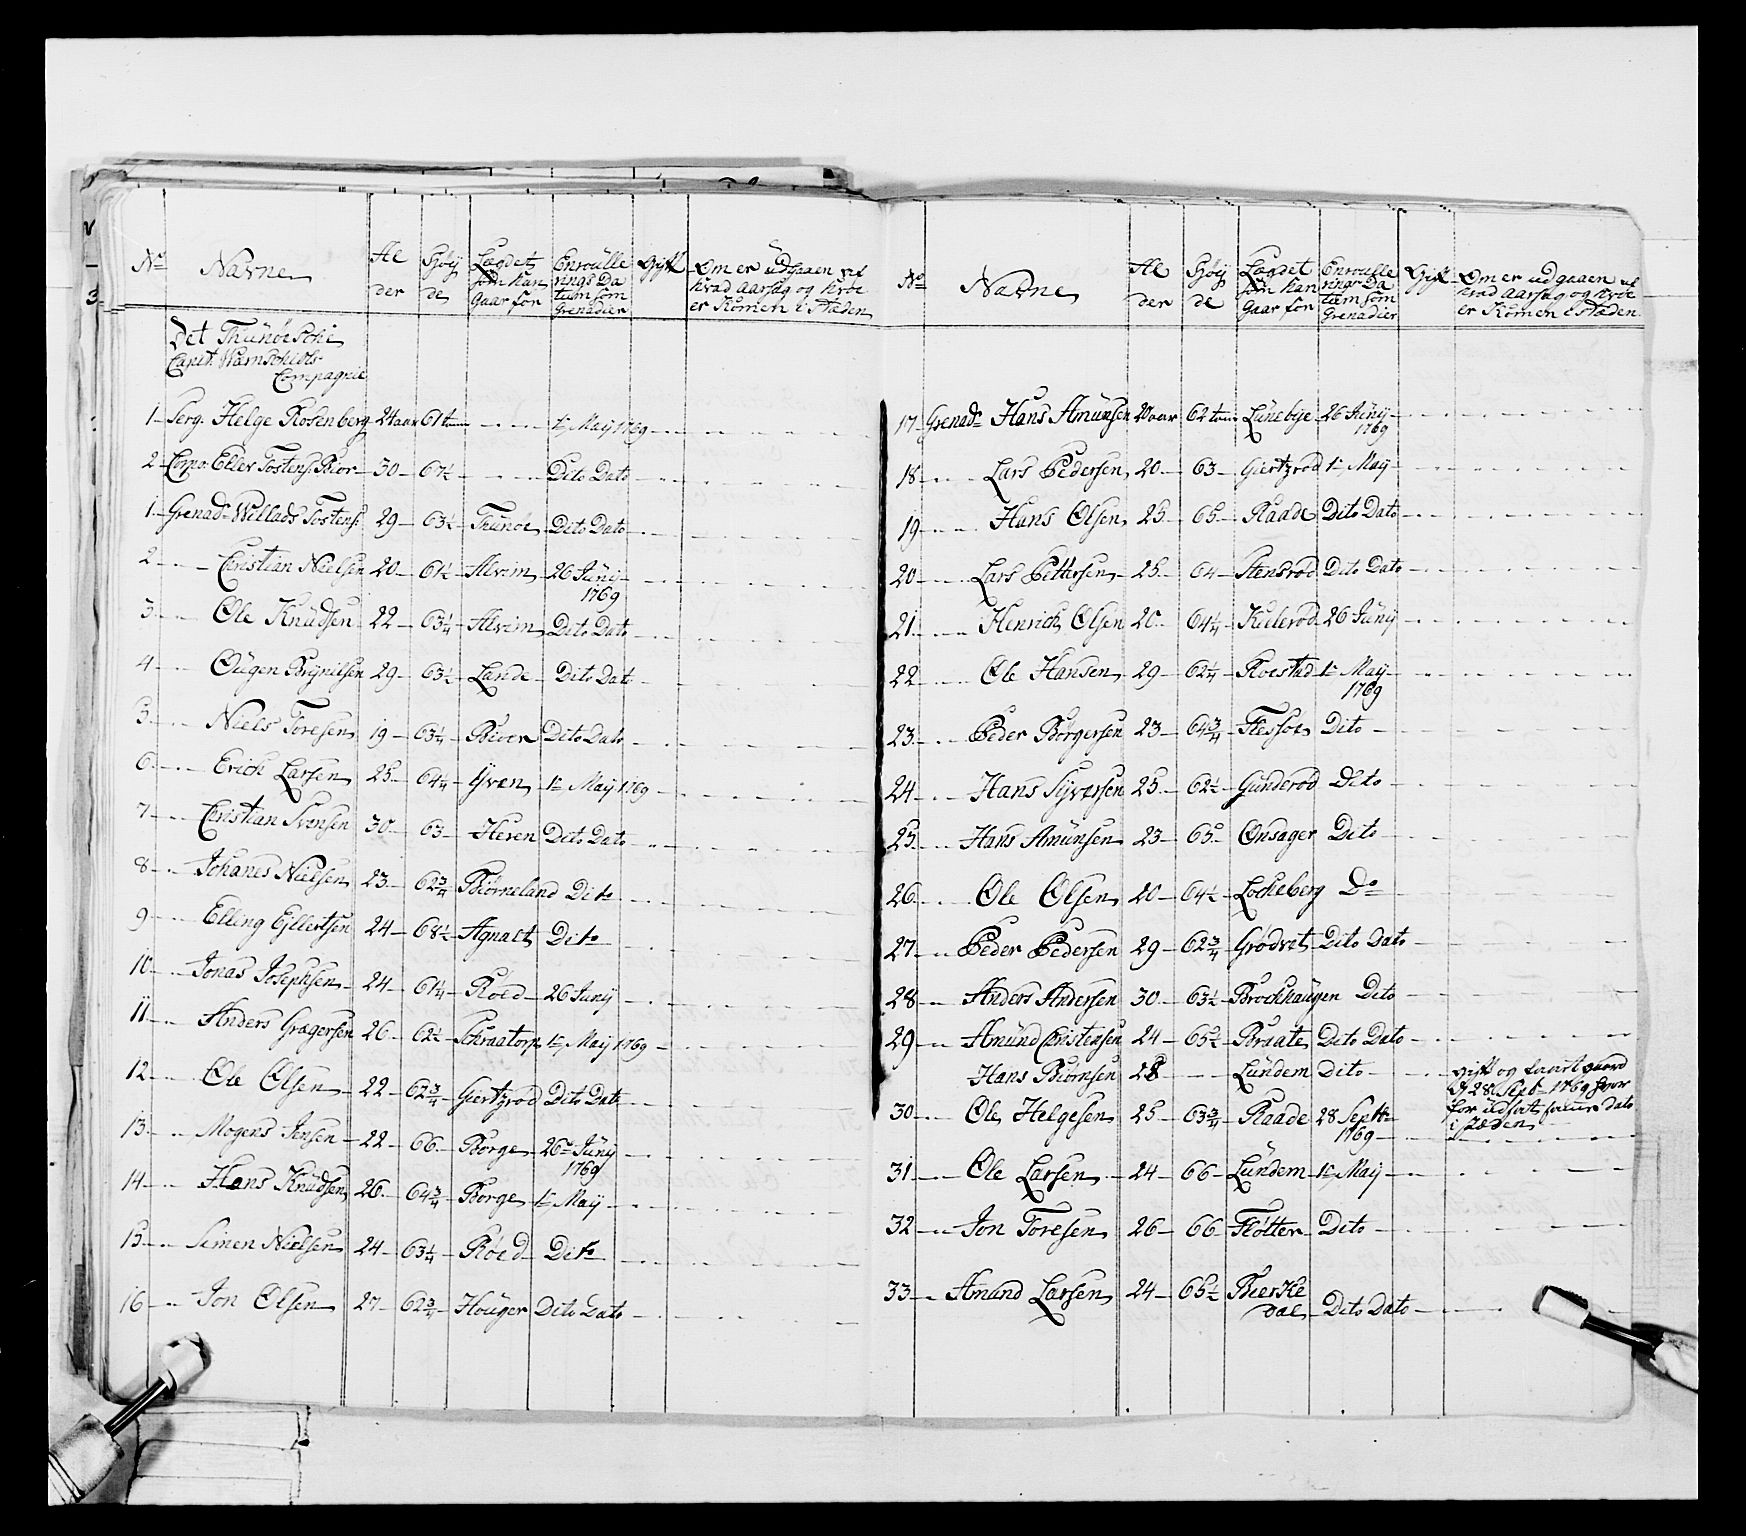 No Navne Al der Høÿ de Lægdet som han gaar for Enroulle rings Da tum som Grenadier Gift Om er udgaaen ved hvad aarsag og hvor er komen i stæden
Det Thunøeske
Capit. Warnschiols
Compagnie
1 Serg. Helge Rosenberg 24 aar 61 tom 1te Maÿ 1769
2 Corpo: Eller Tostens: Bior 30 67½ Dito Dato
1 Grenad. Willads Tostens: 29 63½ Thunøe Dito Dato
2 Christian Nielsen 20 61½ Alvim 26 Junÿ
1769
3 Ole Knudsen 22 63¼ Alvim Dito Dato
4 Ougen Brÿnilsen 29 63½ Lande Dito Dato
5 Niels Toresen 19 63¼ Biver Dito Dato
6 Erich Larsen 25 64¼ Yven 1te Maÿ 1769
7 Christian Svensen 30 63 Heren Dito Dato
8 Johanes Nielsen 23 62¾ Biørneland Dito
9 Elling Ejllertsen 24 68½ Agnalt Dito
10 Jonas Josephsen 24 61¼ Roed 26 Junÿ
11 Anders Gregersen 26 62½ Schraatorp 1te Maÿ 1769
12 Ole Olsen 22 62¾ Giertzrod Dito Dato
13 Mogens Jensen 22 66 Borge 26de Junÿ
1769
14 Hans Knudsen 26 64¾ Borge 1te Maÿ
15 Simen Nielsen 24 63¼ Røed Dito
16 Jon Olsen 27 62¾ Houger Dito Dato
No Navne Al der Høÿ de Lægdet som han gaar for Enroulle rings Da tum som Grenadier Gift Om er udgaaen ved hvad aarsag og hvor er komen i stæden
17 Grenadr Hans Amunsen 20 aar 62 tom Lunebye 26 Junÿ
1769
18 Lars Pedersen 20 63 Giertzrød 1te Maÿ
19 Hans Olsen 25 65 Raade Dito Dato
20 Lars Pettersen 25 64 Stensrød Dito Dato
21 Henrich Olsen 20 64¼ Kielerød 26 Junÿ
22 Ole Hansen 29 62¼ Roestad 1te Maÿ
1769
23 Peder Børgersen 23 64¾ Flessøe Dito
24 Hans Syversen 25 62½ Gunderød Dito
25 Hans Amunsen 23 65 Onsager Dito
26 Ole Olsen 20 64½ Lockeberg Do
27 Peder Pedersen 29 62¾ Grødvet Dito Dato
28 Anders Andersen 30 63½ Brockhaugen Dito
29 Amund Christensen 24 65½ Braate Dito Dato
Hans Biørnsen 28 Lundem Dito gift og
28 Sept 1769 hvor
for udsat samme dato
i stæden
30 Ole Helgesen 25 63¾ Raade 28 Septbr
1769
31 Ole Larsen 24 66 Lundem 1te Maÿ
32 Jon Toresen 26 66 Fløtter Dito
33 Amund Larsen 24 65½ Bierke
dal Dito Dato